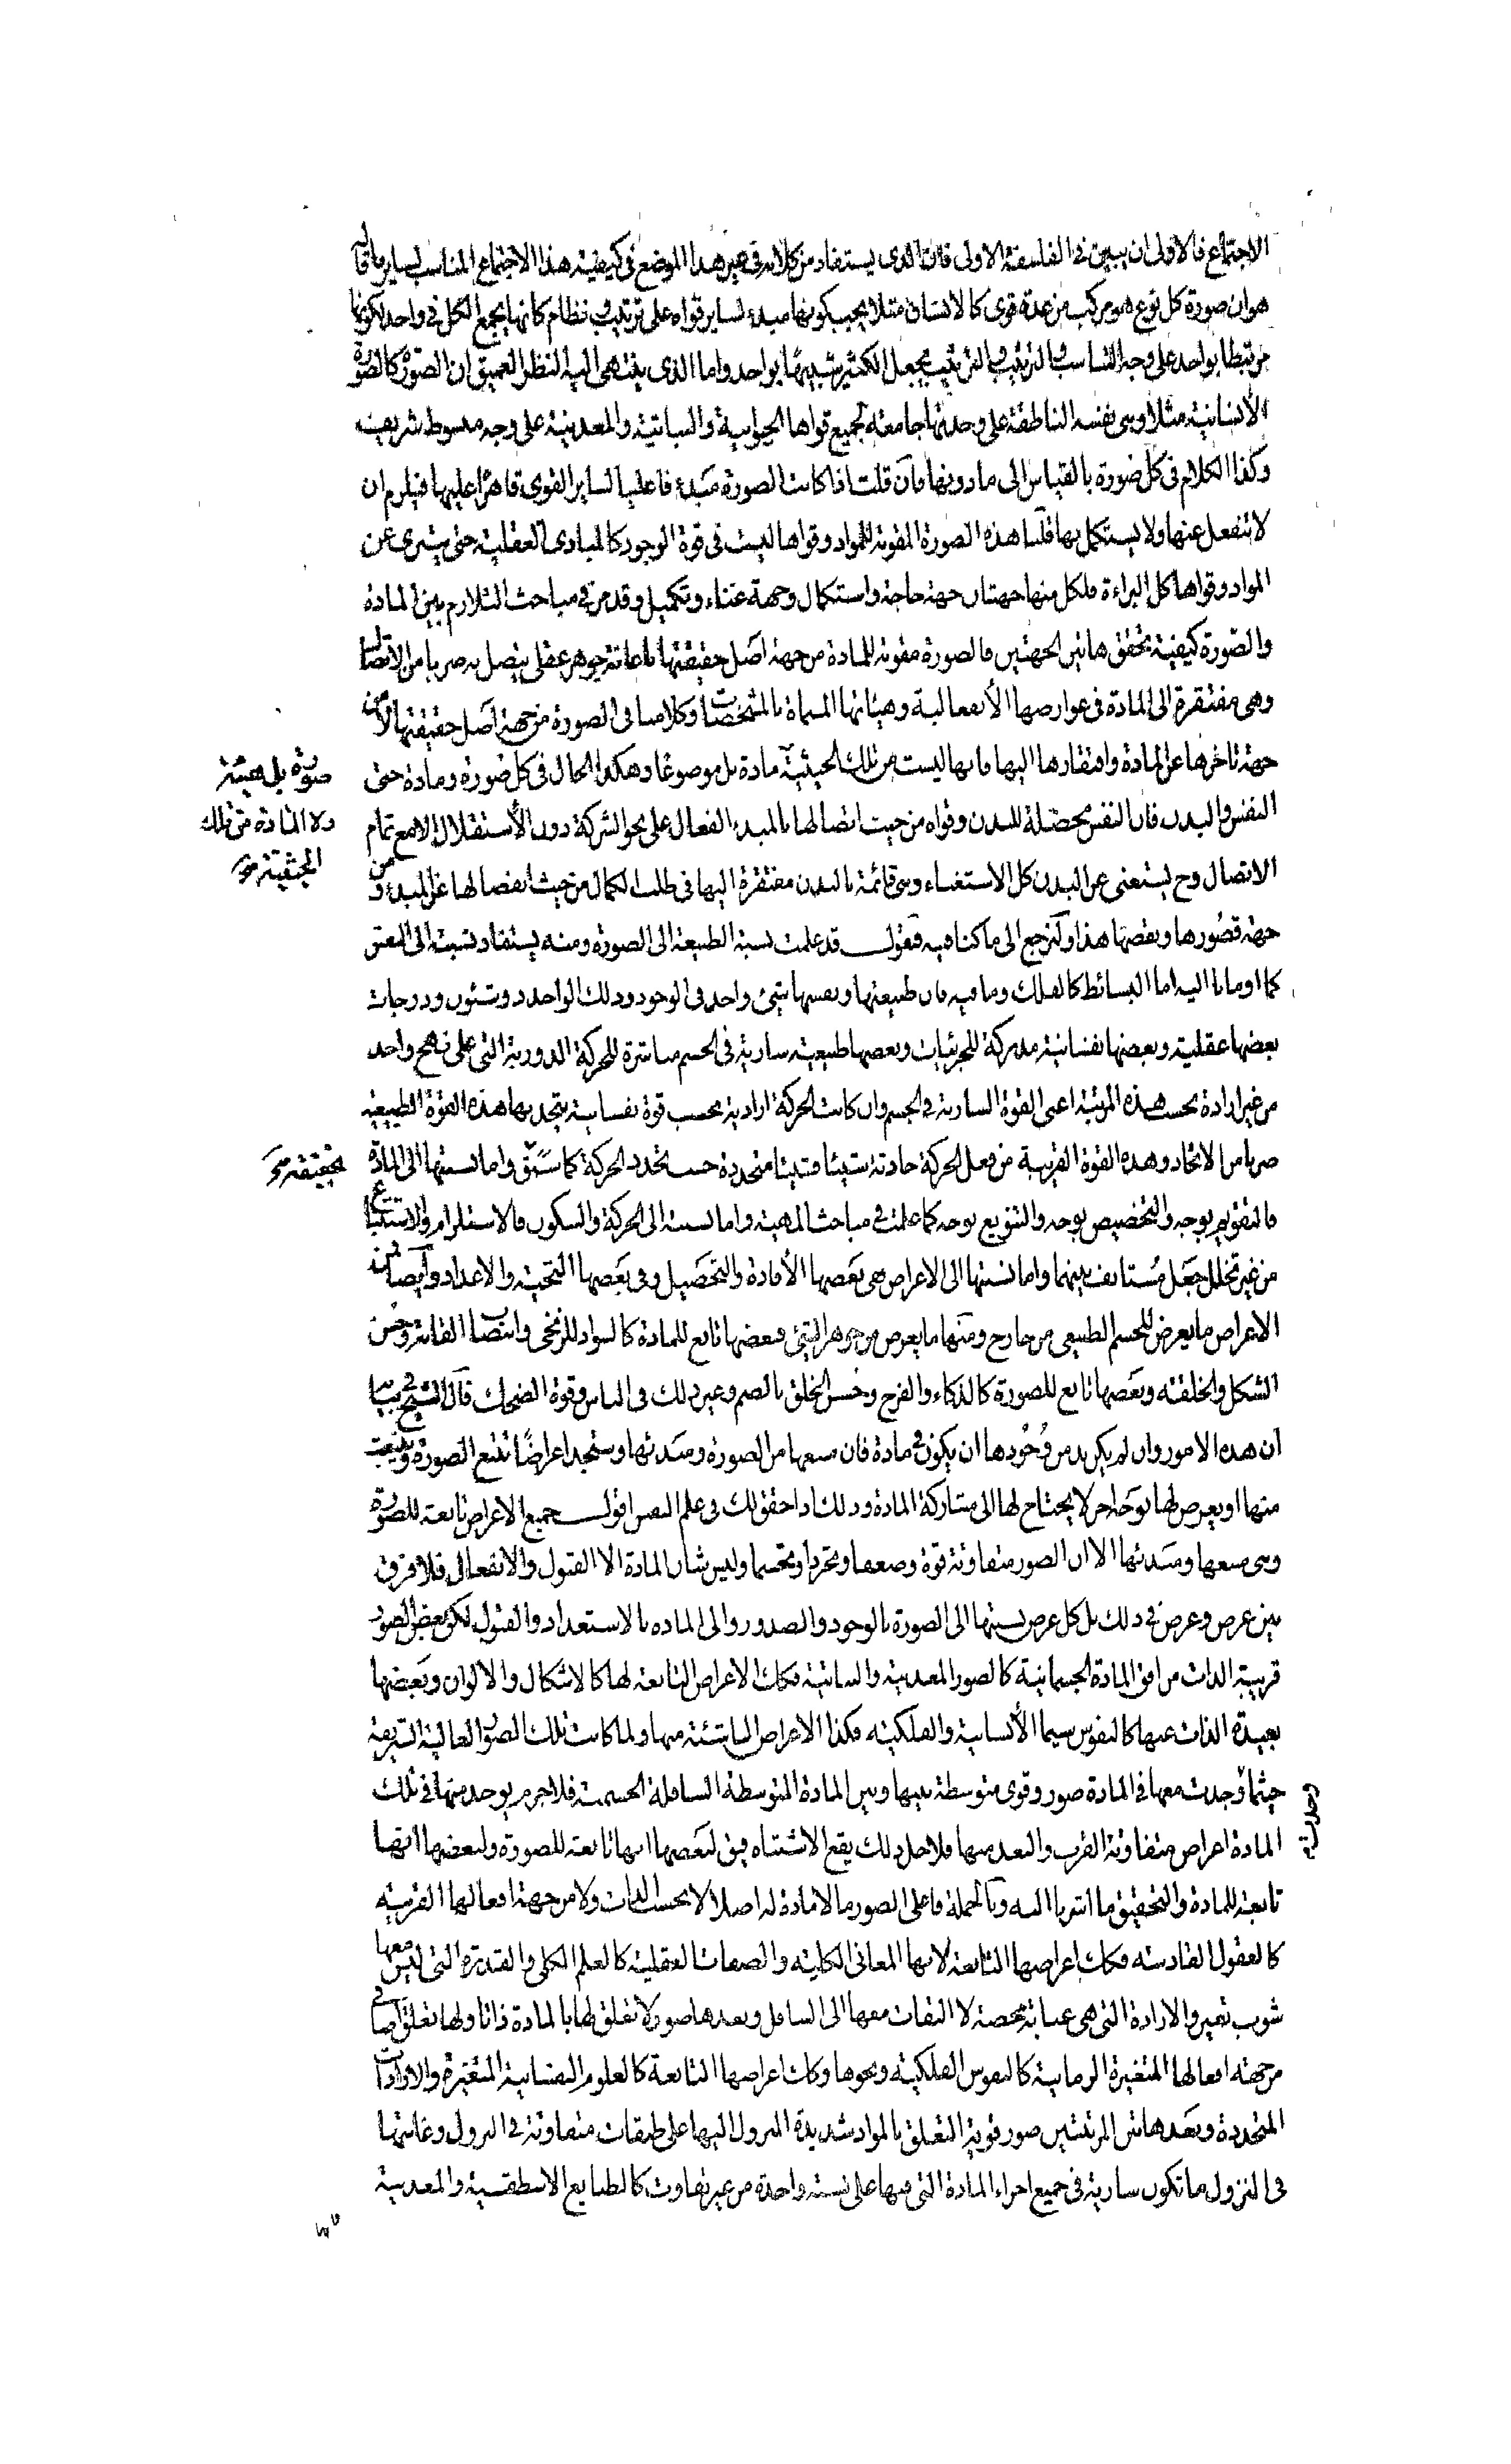 الاجتماع فالاولى ان يبين فى الفلسفة الاولى فان الذى يستفاد من كلامه فى غير هذا الموضع فى كيفية هذا الاجتماع المناسب لساير ما قاله
هو ان صورة كل نوع هو مركب من عدة قوى كالانسان مثلا يجب كونها مبدء لساير قواه على ترتيب و نظام كانها يجمع الكل فى واحد لكونها
مرتبطا بواحد على وجه التناسب و الترتيب و الترتيب يجعل الكثير شبيها بواحد واما الذى ينتهى اليه النظر العميق ان الصورة كالصورة
الانسانية مثلا وهى نفسه الناطقة على وحدتها جامعة لجميع قواها الحيوانية والنباتية والمعدنية على وجه مبسوط شريف
وكذا الكلام فى كل صورة بالقياس الى ما دونها فان قلت اذا كانت الصورة مبدء فاعليا لساير القوى قاهرا عليها فيلزم ان
لا تنفعل عنها ولا يستكمل بها قلنا هذه الصورة المقومة للمواد وقواها ليست فى قوة الوجود كالمبادى العقلية حتى يتبرى عن
المواد وقواها كل البراءة فلكل منها جهتان جهة حاجة واستكمال وجهة غناء وتكميل وقد مر فى مباحث التلازم بين المادة
والصورة كيفية تحقق هاتين الجهتين فالصورة مقومة للمادة من جهة اصل حقيقتها باعانة جوهر عقلى يتصل به ضربا من الاتصال
وهى مفتقرة الى المادة فى عوارضها الانفعالية وهيئاتها المسماة بالمشخصات وكلامنا فى الصورة من جهة اصل حقيقتها لا من
جهة تاخرها عن المادة وافتقارها اليها فانها ليست من تلك الحيثية مادة بل موضوعا وهكذا الحال فى كل صورة ومادة حتى
صورة بل هيئة
ولا المادة من تلك
الحيثية
النفس والبدن فان النفس محصلة للبدن وقواه من حيث اتصالها بالمبدء الفعال على نحو الشركة دون الاستقلال الا مع تمام
الاتصال وح يستغنى عن البدن كل الاستغناء وهى قائمة بالبدن مفتقرة اليها فى طلب الكمال من حيث انفصالها عن المبدء و من
جهة قصورها ونقصها هذا ولنرجع الى ما كنا فيه فنقول قد علمت نسبة الطبيعة الى الصورة ومنه يستفاد نسبته الى النفس
كما اومانا اليه اما البسائط كالفلك وما فيه فان طبيعتها ونفسها شئ واحد فى الوجود وذلك الواحد ذو شئون ودرجات
بعضها عقلية وبعضها نفسانية مدركة للجزئيات وبعضها طبيعية سارية فى الجسم مباشرة للحركة الدورية التى على نهج واحد
من غير ارادة بحسب هذه المرتبة اعنى القوة السارية فى الجسم وان كانت الحركة ارادية بحسب قوة نفسانية يتحد بها هذه القوة الطبيعية
ضربا من الاتحاد وهذه القوة القريبة من فعل الحركة حادثة شيئا فشيئا متجددة حسب تجدد الحركة كما سبق واما نسبتها الى المادة
بحقيقته
فالتقويم بوجه والتخصيص بوجه والتنويع بوجه كما علمت فى مباحث المهية واما نسبته الى الحركة والسكون فالاستلزام والاستتباع
من غير تخلل جعل مستانف بينهما واما نسبتها الى الاعراض فهى بعضها الافادة والتحصيل وفى بعضها التهيئة والاعداد وايضا من
الاعراض ما يعرض للجسم الطبيعى من خارج ومنها ما يعرض من جوهر الشئ فبعضها تابع للمادة كالسواد للزنجى وانتصاب القامة وحسن
الشكل والخلقة وبعضها تابع للصورة كالذكاء والفرح وحسن الخلق وغير ذلك فى الناس وقوة الضحك قال الشيخ فى بيانه
ان هذه الامور وان لم يكن بد من وجودها ان يكون فى مادة فان منبعها من الصورة ومبدئها وستجد اعراضا تتبع الصورة وتنبعث
منها او يعرض لها بوجه اخر لا يحتاج لها الى مشاركة المادة وذلك اذا حقق لك فى علم النفس اقول جميع الاعراض تابعة للصورة
وهى منبعها ومبدئها الا ان الصور متفاوتة قوة وضعفا وتجردا وتجسما وليس شان المادة الا القبول والانفعال فلا فرق
بين عرض وعرض فى ذلك بل كل عرض نسبتها الى الصورة بالوجود والصدور والى المادة بالاستعداد والقبول لكن بعض الصور
قريبة الذات من افق المادة الجسمانية كالصور المعدنية والنباتية فكانت الاعراض التابعة لها كالاشكال والالوان وبعضها
بعيدة الذات عنها كالنفوس سيما الانسانية والفلكية فكذا الاعراض الناشئة منها ولما كانت تلك الصور العالية الشريفة
حيثما وجدت معها فى المادة صور وقوى متوسطة بينها وبين المادة المتوسطة السافلة الجسمية فلا جرم يوجد منها فى تلك
المادة اعراض متفاوتة القرب والبعد منها فلاجل ذلك يقع الاشتباه فيق لبعضها انها تابعة للصورة ولبعضها انها
تابعة للمادة والتحقيق ما اشرنا اليه وبالجملة فاعلى الصور ما لا مادة له اصلا لا بحسب الذات ولا من جهة افعالها القريبة
كالعقول القادسة فكانت اعراضها التابعة لانها المعانى الكلية والصفات العقلية كالعلم الكلى والقدرة التى ليس معها
شوب تغير والارادة التى هى عناية محضة لا التفات معها الى السافل وبعدها صور لا تعلق لها بالمادة ذاتا ولها تعلق ايضا
من جهة افعالها المتغيرة الزمانية كالنفوس الفلكية ونحوها وكانت اعراضها التابعة كالعلوم النفسانية المتغيرة والارادات
المتجددة وبعد هاتين المرتبتين صور قوية التعلق بالمواد شديدة النزول اليها على طبقات متفاوتة فى النزول وغايتها
فى النزول ما تكون سارية فى جميع اجزاء المادة التى فيها على نسبة واحدة من غير تفاوت كالطبايع الاسطقسية والمعدنية